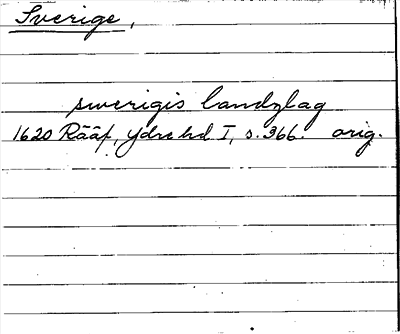 Sverige,
swerigis landzlag
1620 Rääf, Ydre hd I, s. 366. orig.